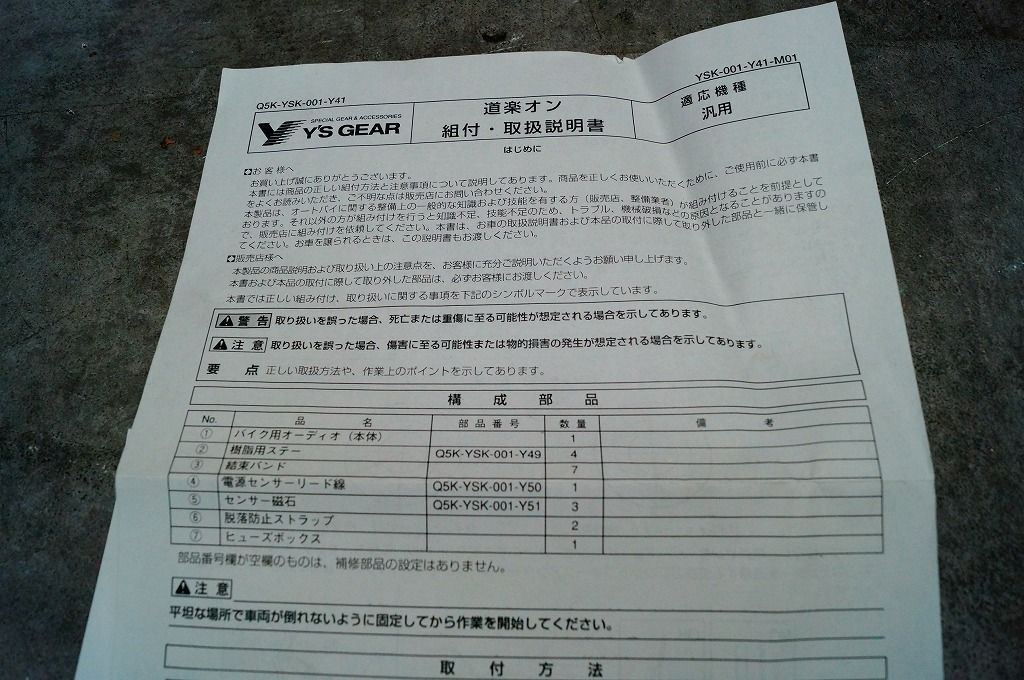 Q5K-YSK-001-Y41
YSK-001-Y41-M01
SPECIAL GEAR & ACCESSORIES
Y'S GEAR
道楽オン
組付・取扱説明書
適応機種
汎用
はじめに
お客様へ
お買い上げ誠にありがとうございます。
本書には商品の正しい組付方法と注意事項について説明してあります。商品を正しくお使いいただくために、ご使用前に必ず本書
をよくお読みいただき、ご不明な点は販売店にお問い合わせください。
本製品は、オートバイに関する整備上の一般的な知識および技能を有する方（販売店、整備業者）が組み付けることを前提として
おります。それ以外の方が組み付けを行うと知識不足、技能不足のため、トラブル、機械破損などの原因となることがありますの
で、販売店に組み付けを依頼してください。本書は、お車の取扱説明書および本品の取付に際して取り外した部品と一緒に保管し
てください。お車を譲られるときは、この説明書もお渡しください。
販売店様へ
本製品の商品説明および取り扱い上の注意点を、お客様に充分ご説明いただくようお願い申し上げます。
本書および本品の取付に際して取り外した部品は、必ずお客様にお渡しください。
本書では正しい組み付け、取り扱いに関する事項を下記のシンボルマークで表示しています。
警告 取り扱いを誤った場合、死亡または重傷に至る可能性が想定される場合を示してあります。
注意 取り扱いを誤った場合、傷害に至る可能性または物的損害の発生が想定される場合を示してあります。
要 点 正しい取扱方法や、作業上のポイントを示してあります。
構 成 部 品
No. 品 名 部品番号 数量 備 考
① バイク用オーディオ（本体） 1
② 樹脂用ステー Q5K-YSK-001-Y49 4
③ 結束バンド 7
④ 電源センサーリード線 Q5K-YSK-001-Y50 1
⑤ センサー磁石 Q5K-YSK-001-Y51 3
⑥ 脱落防止ストラップ 2
⑦ ヒューズボックス 1
部品番号欄が空欄のものは、補修部品の設定はありません。
注意
平坦な場所で車両が倒れないように固定してから作業を開始してください。
取 付 方 法